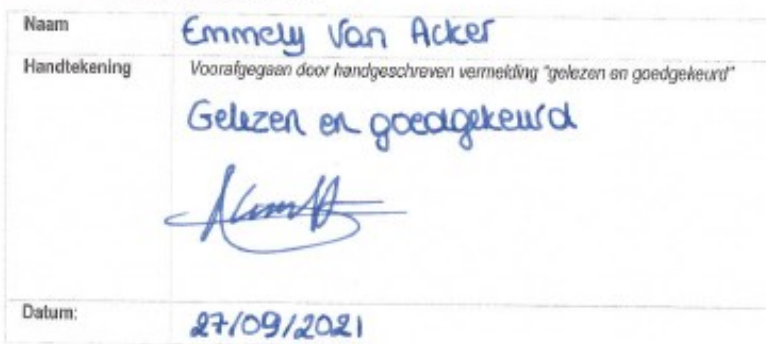 Naam Emmely Van Acker
Handtekening Voorafgegaan door handgeschreven vermelding "gelezen en goedgekeurd"
Gelezen en goedgekeurd
Datum: 27/09/2021